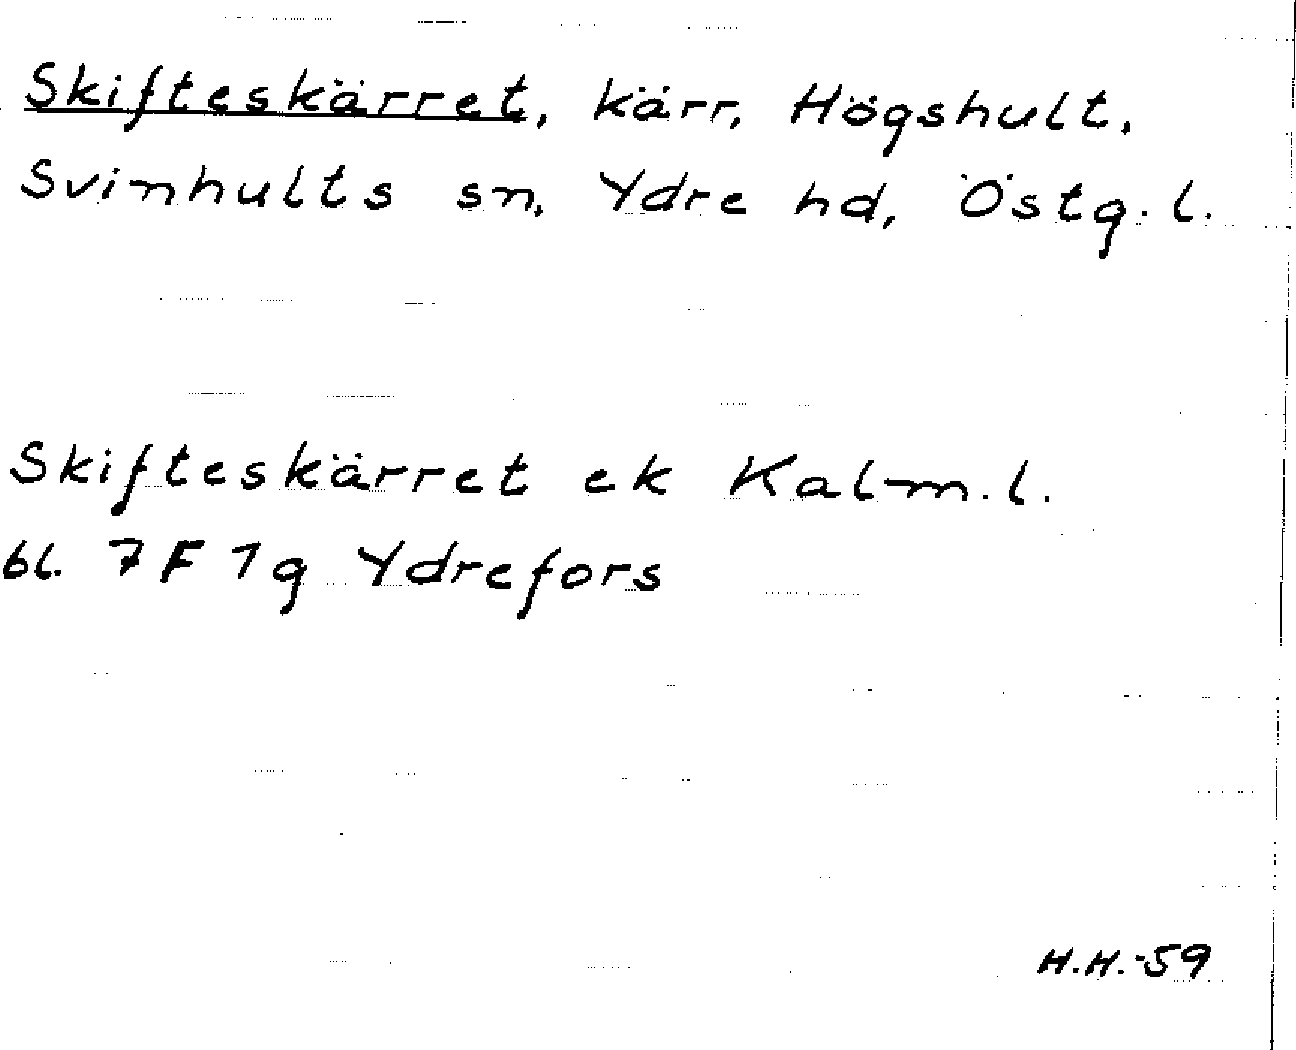 Skifteskärret, kärr, Högshult,
Svinhults sn, Ydre hd, Östg. l.
Skifteskärret ek Kalm. l.
bl. 7F 1g Ydrefors
H.H.-59